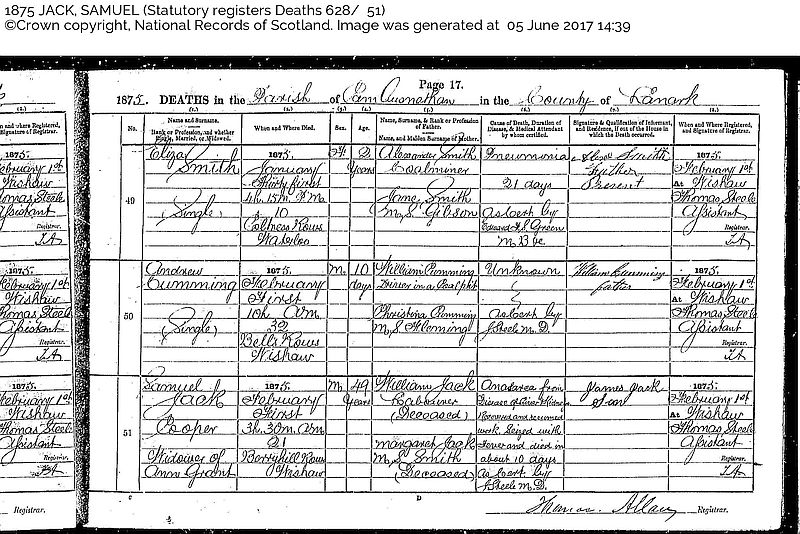 1875 JACK, SAMUEL (Statutory registers Deaths 628/ 51)
©Crown copyright, National Records of Scotland. Image was generated at 05 June 2017 14:39
Page 17.
1875. DEATHS in the Parish of Cambusnethan in the County of Lanark
No.
Name and Surname.
Rank or Profession, and whether
Single, Married, or Widowed.
When and Where Died.
Sex.
Age.
Name, Surname, & Rank or Profession
of Father.
Name, and Maiden Surname of Mother.
Cause of Death, Duration of
Disease, & Medical Attendant
by whom certified.
Signature & Qualification of Informant,
and Residence, if out of the House in
which the Death occurred.
When and where Registered,
and Signature of Registrar.
49
Eliza
Smith
(Single)
1875.
January
Thirty first
4h. 15m. P.M.
10
Coltness Rows
Waterloo
F.
2
Years
Alexander Smith
Coalminer
Jane Smith
M.S. Gibson
Pneumonia
21 days
As cert by
Smith
Father
Present
1875.
February 1st
At Wishaw
Thomas Steele
Assistant
Registrar.
50
Andrew
Cumming
(Single)
1875.
February
First
10h. A.M.
32
Bells Rows
Wishaw
M.
10
days
William Cumming
Christina Cumming
M.S. Fleming
Unknown
As cert by
J Steele M.D.
William Cumming
father
1875.
February 1st
At Wishaw
Thomas Steele
Assistant
Registrar.
51
Samuel
Jack
Cooper
Widower of
Ann Grant
1875.
February
First
3h. 30m. A.M.
21
Berryhill Rows
Wishaw
M.
49
Years
William Jack
(Deceased)
Margaret Jack
M.S. Smith
(Deceased)
from
Disease of Liver
work. Seized with
Fever and died in
about 10 days
As cert by
J Steele M.D.
James Jack
Son
1875.
February 1st
At Wishaw
Thomas Steele
Assistant
Registrar.
Thomas Allan
Registrar.